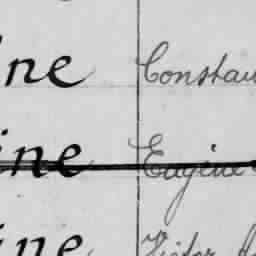 ine Constan
ine Eugène
ine Victor